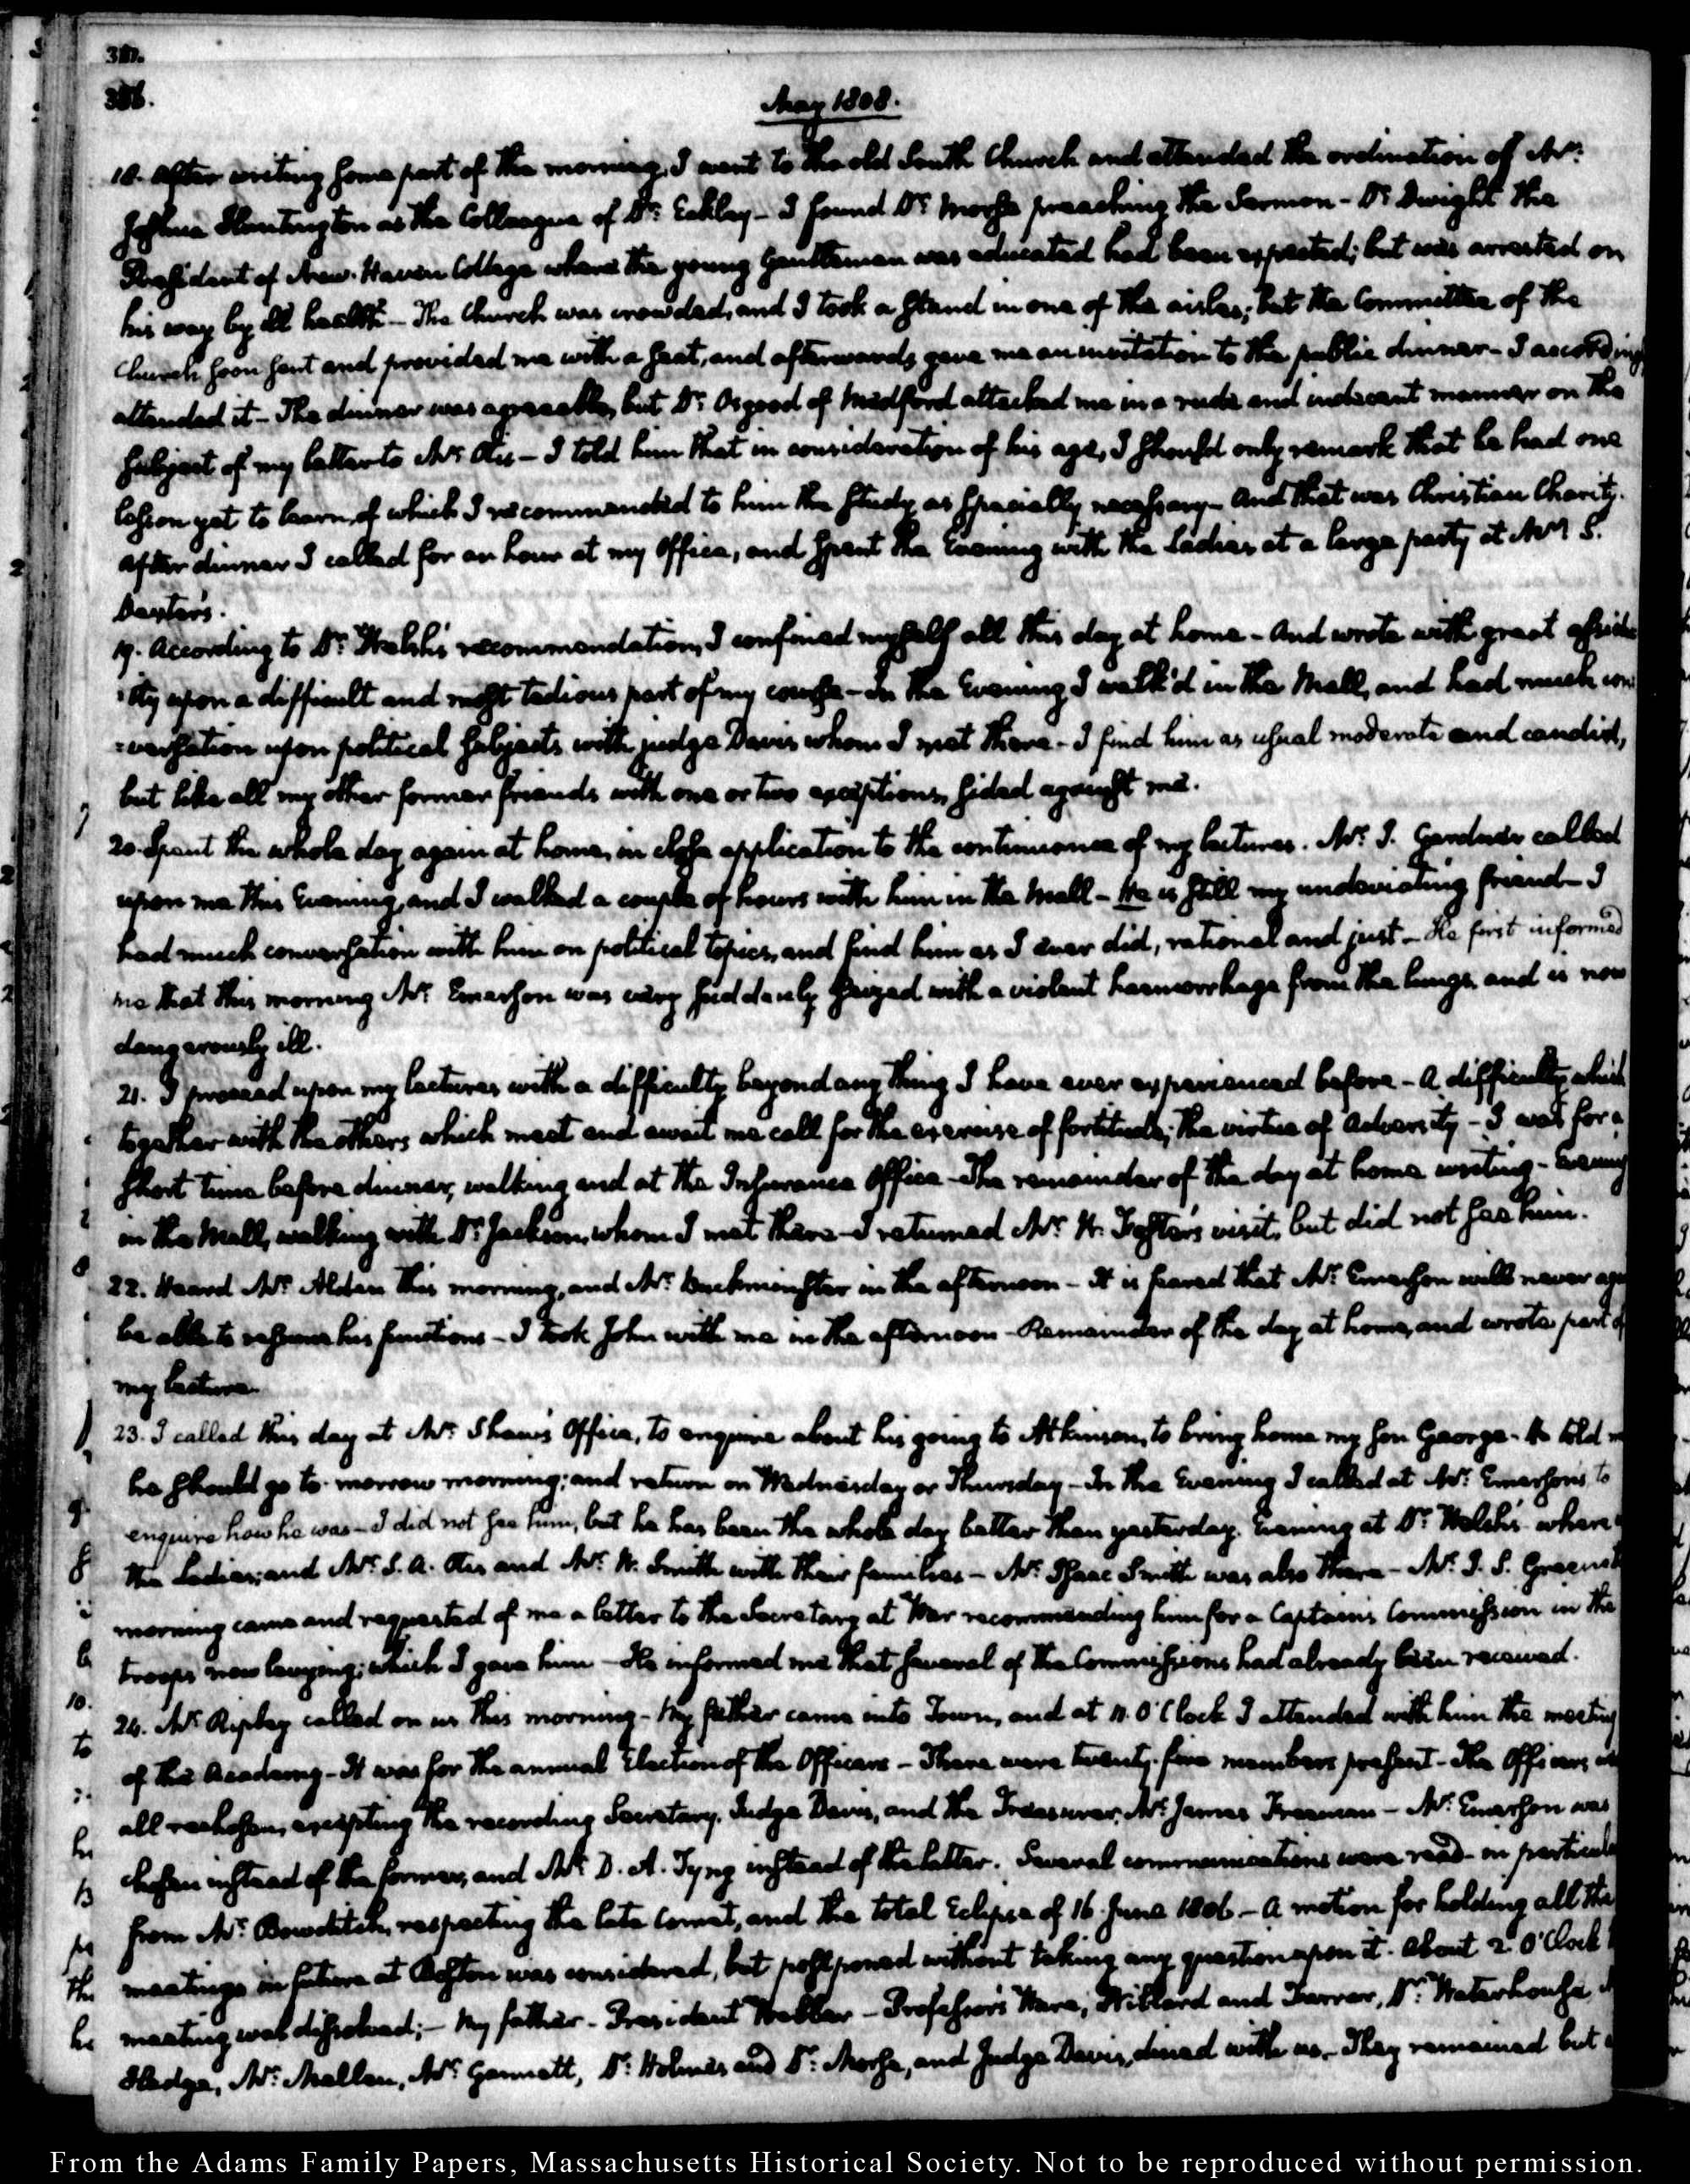 386.
May 1808.
18. After writing some part of the morning, I went to the old South Church and attended the ordination of Mr:
Joshua Huntington as the Colleague of Dr: Eckley — I found Dr: Morse preaching the Sermon — Dr: Dwight the
President of New-Haven College where the young Gentleman was educated had been expected; but was arrested on
his way by ill health — The Church was crowded, and I took a stand in one of the aisles; but the Committee of the
Church soon sent and provided me with a seat, and afterwards gave me an invitation to the public dinner — I accordingly
attended it — The dinner was agreeable, but Dr: Osgood of Medford attacked me in a rude and indecent manner on the
subject of my letter to Mr: Otis — I told him that in consideration of his age, I should only remark that he had one
lesson yet to learn, of which I recommended to him the study as specially necessary — And that was Christian Charity.
After dinner I called for an hour at my Office, and spent the Evening with the Ladies, at a large party at Mr: S.
Dexter's.
19. According to Dr: Welsh's recommendation, I confined myself all this day at home — And wrote with great assidu
:ity upon a difficult and most tedious part of my course — In the Evening I walk'd in the Mall, and had much con
:versation upon political subjects with judge Davis whom I met there — I find him as usual moderate and candid,
but like all my other former friends with one or two exceptions, sided against me.
20. Spent the whole day again at home, in close application to the continuance of my lectures. Mr: J. Gardner called
upon me this Evening, and I walked a couple of hours with him in the Mall — He is still my undeviating friend — I
had much conversation with him on political topics, and find him as I ever did, rational and just — He first informed
me that this morning Mr: Emerson was very suddenly seized with a violent haemorrhage from the lungs, and is now
dangerously ill.
21. I proceed upon my lectures with a difficulty beyond any thing I have ever experienced before — A difficulty which
together with the others which meet and await me call for the exercise of fortitude; the virtue of Adversity — I was for a
short time before dinner, walking and at the Insurance Office — The remainder of the day at home writing — Evening
in the Mall, walking with Dr: Jackson, whom I met there — I returned Mr: W. Foster's visit, but did not see him.
22. Heard Mr: Alden this morning, and Mr: Buckminster in the afternoon — It is feared that Mr: Emerson will never
be able to resume his functions — I took John with me in the afternoon — Remainder of the day at home, and wrote part of
my lecture.
23. I called this day at Mr: Shaw's Office, to enquire about his going to Atkinson, to bring home my son George. He told
he should go to-morrow morning; and return on Wednesday or Thursday — In the Evening I called at Mr: Emerson's to
enquire how he was — I did not see him, but he has been the whole day better than yesterday. Evening at Dr: Welsh's where
the Ladies, and Mr: S. A. Otis and Mr: W. Smith with their families — Mr: Isaac Smith was also there — Mr: J. S.
morning came and requested of me a letter to the Secretary at War recommending him for a Captain's Commission in the
troops now levying; which I gave him — He informed me that several of the Commissions had already been received.
24. Mr: Ripley called on us this morning — My father came into Town, and at 11. O'Clock I attended with him the meeting
of the Academy — It was for the annual Election of the Officers — There were twenty-five members present — The Officers
all rechosen, excepting the recording Secretary, Judge Davis, and the Treasurer, Mr: James Freeman — Mr: Emerson was
chosen instead of the former, and Mr: D. A. Tyng instead of the latter. Several communications were read — in particular
from Mr: Bowditch, respecting the late Comet, and the total Eclipse of 16. June 1806 — A motion for holding all the
meetings in future at Boston was considered, but postponed without taking any question upon it. About 2 O'Clock
meeting was dissolved; — My father — President Webber — Professors Ware, Willard and Farrar, Dr: Waterhouse,
Hedge, Mr: Mellen, Mr: Gannett, Dr: Holmes and Dr: Morse, and Judge Davis, dined with us — They remained but
From the Adams Family Papers, Massachusetts Historical Society. Not to be reproduced without permission.